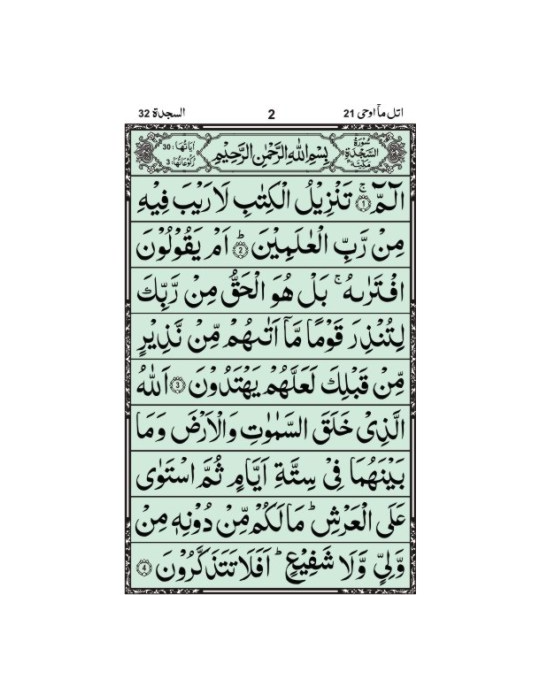 اتل مآ اوحی 21 2 السجدة 32
سُوْرَةُ السَّجْدَةِ مَكِّيَّةٌ بِسْمِ اللّٰهِ الرَّحْمٰنِ الرَّحِيْمِ اٰيَاتُهَا : 30 رُكُوْعَاتُهَا : 3
الٓمّٓ ۚ ۝1 تَنْزِيْلُ الْكِتٰبِ لَا رَيْبَ فِيْهِ
مِنْ رَّبِّ الْعٰلَمِيْنَ ؕ ۝2 اَمْ يَقُوْلُوْنَ
افْتَرٰىهُ ۚ بَلْ هُوَ الْحَقُّ مِنْ رَّبِّكَ
لِتُنْذِرَ قَوْمًا مَّاۤ اَتٰىهُمْ مِّنْ نَّذِيْرٍ
مِّنْ قَبْلِكَ لَعَلَّهُمْ يَهْتَدُوْنَ ۝3 اَللّٰهُ
الَّذِيْ خَلَقَ السَّمٰوٰتِ وَالْاَرْضَ وَمَا
بَيْنَهُمَا فِيْ سِتَّةِ اَيَّامٍ ثُمَّ اسْتَوٰى
عَلَى الْعَرْشِ ؕ مَا لَكُمْ مِّنْ دُوْنِهٖ مِنْ
وَّلِيٍّ وَّلَا شَفِيْعٍ ؕ اَفَلَا تَتَذَكَّرُوْنَ ۝4